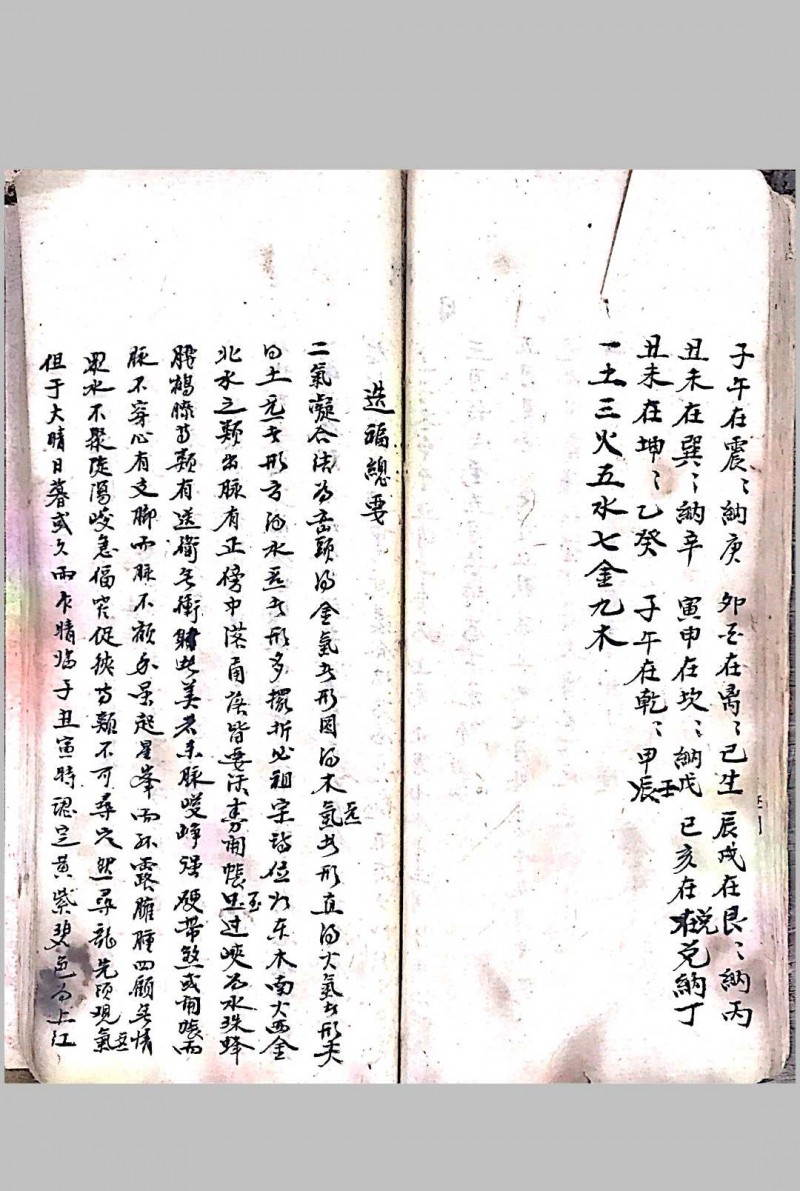 子午在震〻納庚 卯酉在离〻己生 辰戌在艮〻納丙
丑未在巽〻納辛 寅申在坎〻納戊 巳亥在兌納丁
丑未在坤〻乙癸 子午在乾〻甲壬
辰
一土三火五水七金九木
造福總要
二氣凝合法為岳頭得金氣其形圓得木氣者其形直得火氣者形尖
得土氣者形方得水氣者形多擺折必祖宗得位如东木南火西金
北水之類出脉有正傍中落角落皆要活 開帳 过峽为水珠蜂
腰鶴膝等類有送衛無衝射此美若来脉峻崢强硬帶煞或開帳而
脉不穿心有支脚而脉不 起星峯而孤露臃腫四顧無情
眾水不聚陡瀉峻急偪窄促狹等類不可尋穴 尋龍先須观氣
但于大晴日暮或久雨乍晴临子丑寅時 定黄紫 色为上江